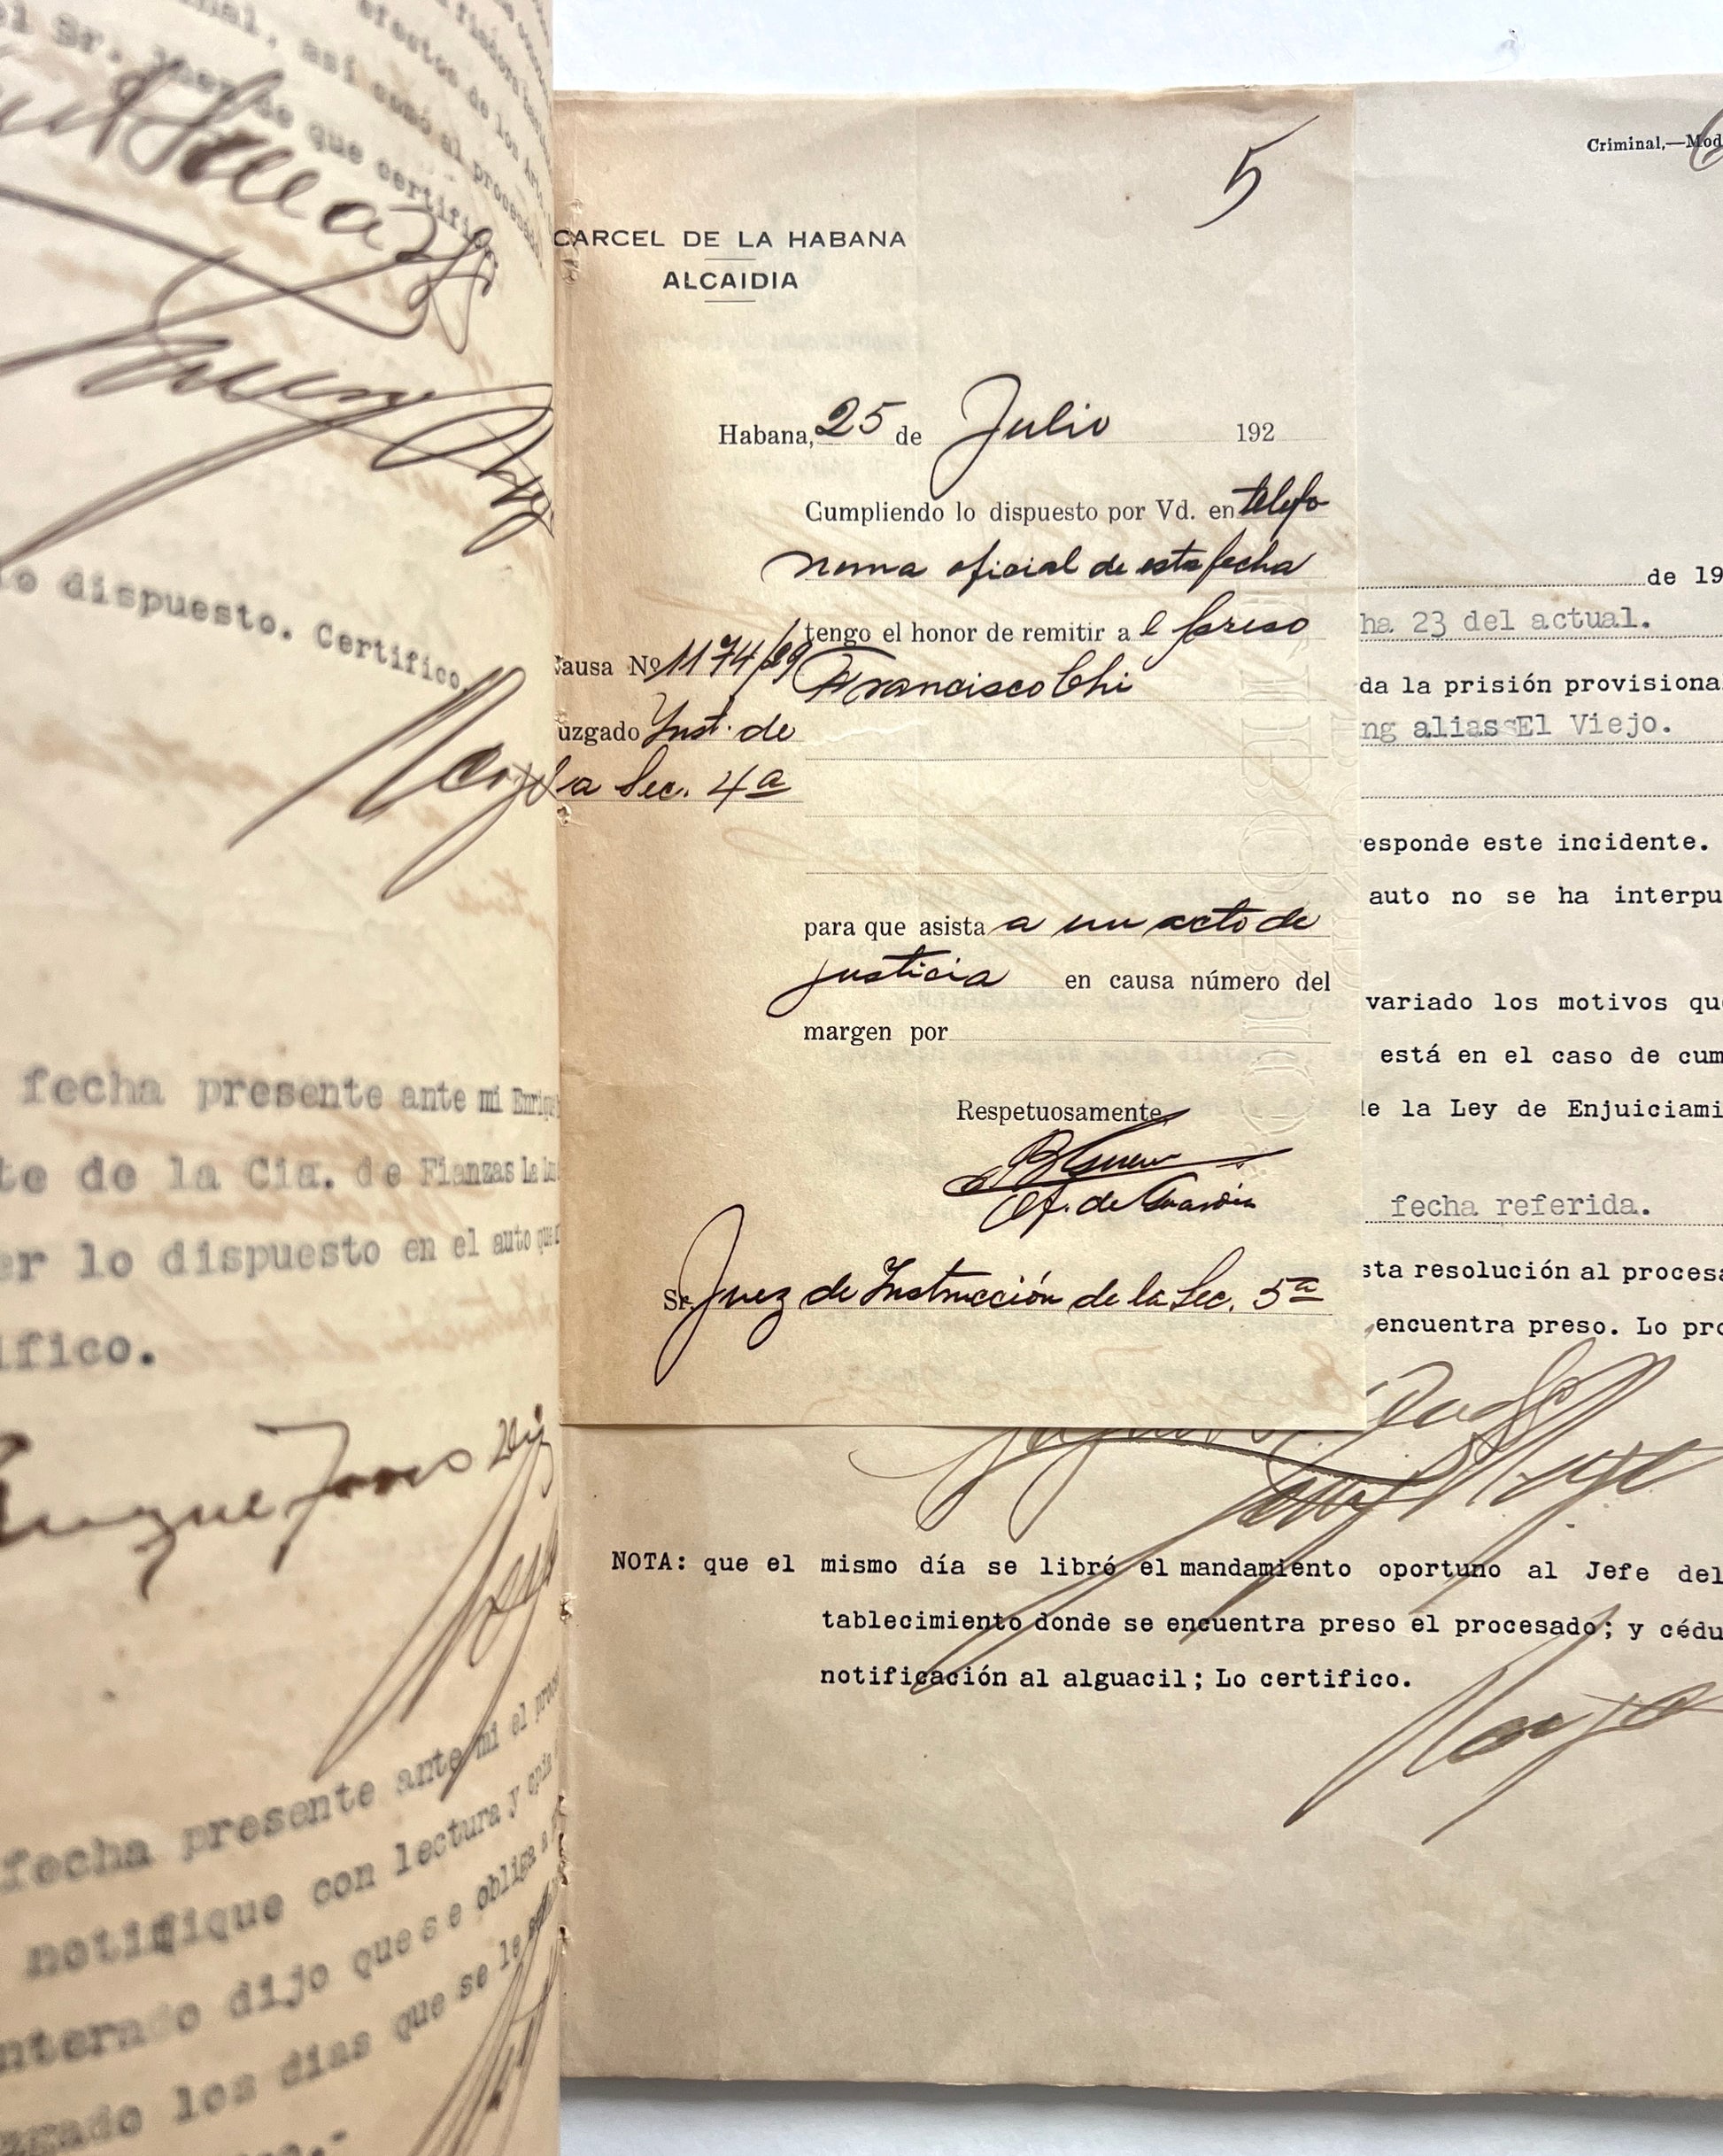 efectos de los Arts.
nal, así como al procesado
el Sr. Juez de que certifico
lo dispuesto. Certifico
fecha presente ante mi Enrique
te de la Cia. de Fianzas La
er lo dispuesto en el auto que
ifico.
Enrique
fecha presente ante mi el proce
notifique con lectura y copia
nterado dijo que se obliga a
zgado los dias que se le
5
CARCEL DE LA HABANA
ALCAIDIA
Habana, 25 de Julio 192
Cumpliendo lo dispuesto por Vd. en telefo
nema oficial de esta fecha
tengo el honor de remitir a l preso
Francisco Chi
Causa Nº 1174/29
Juzgado Inst. de
la Sec. 4ª
para que asista a un acto de
justicia en causa número del
margen por
Respetuosamente,
Of. de Guardia
Sr. Juez de Instrucción de la Sec. 5ª
Criminal,—Mod
6
de 19
ha 23 del actual.
da la prisión provisional
ng alias El Viejo.
esponde este incidente.
auto no se ha interpu
variado los motivos que
está en el caso de cum
de la Ley de Enjuiciami
fecha referida.
sta resolución al procesa
encuentra preso. Lo pro
NOTA: que el mismo día se libró el mandamiento oportuno al Jefe del
tablecimiento donde se encuentra preso el procesado; y cédu
notificación al alguacil; Lo certifico.